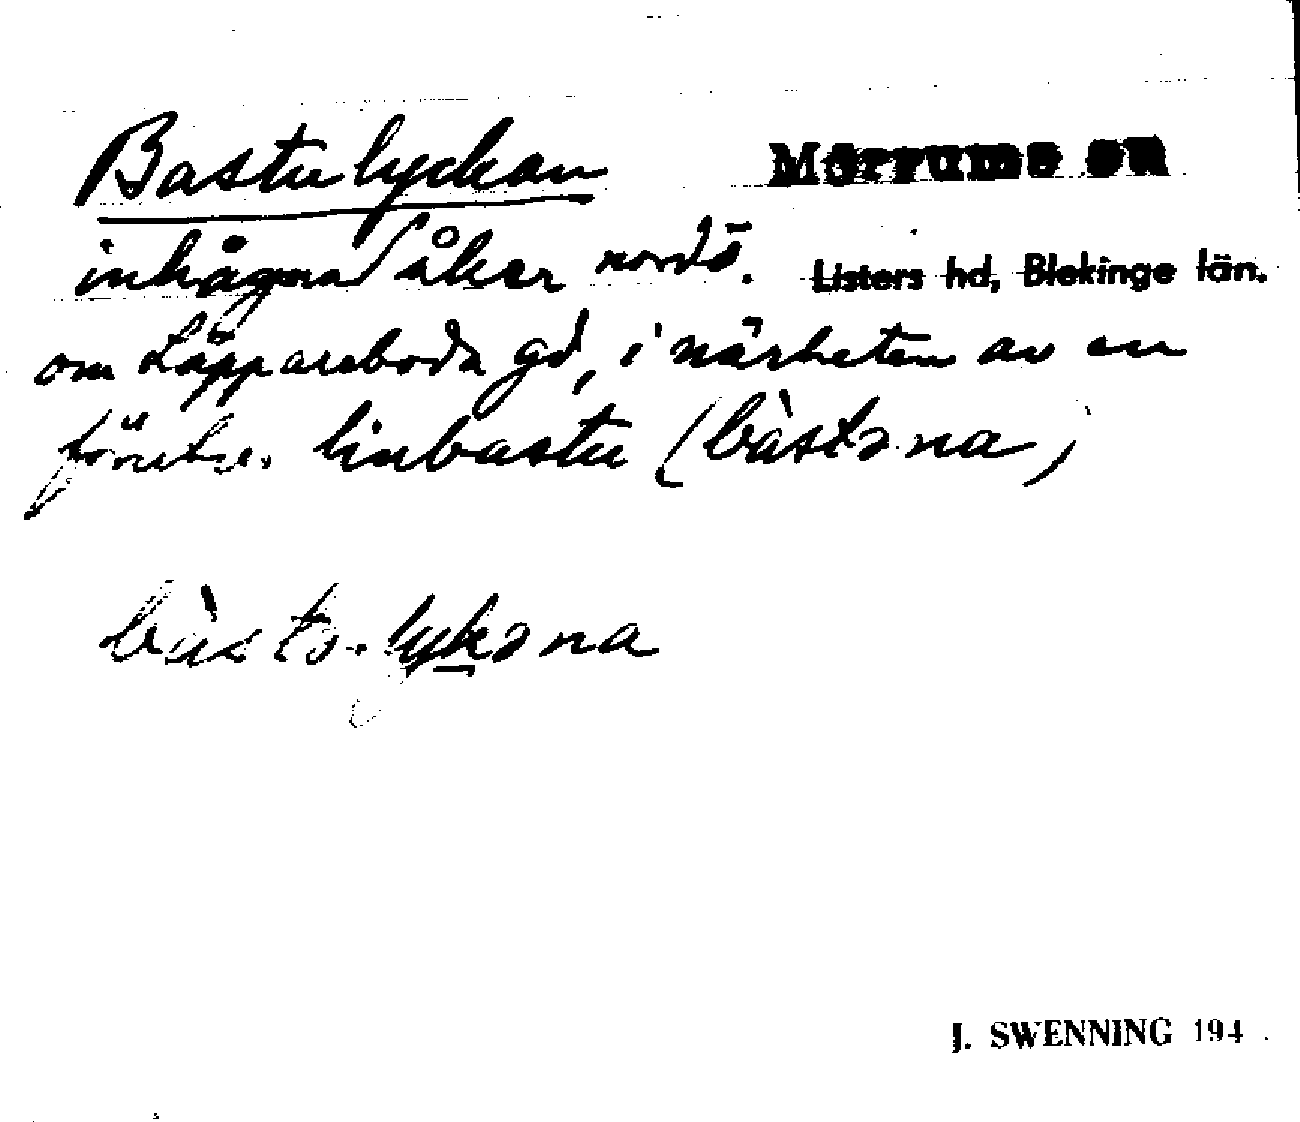 Bastulyckan Mörrums sn
inhägnad åker nordö. Listers hd, Blekinge län.
om Läppareboda gd, i närheten av en
förutv. linbastu (bàstəna)
bàstə.lykəna
J. SWENNING 194 .